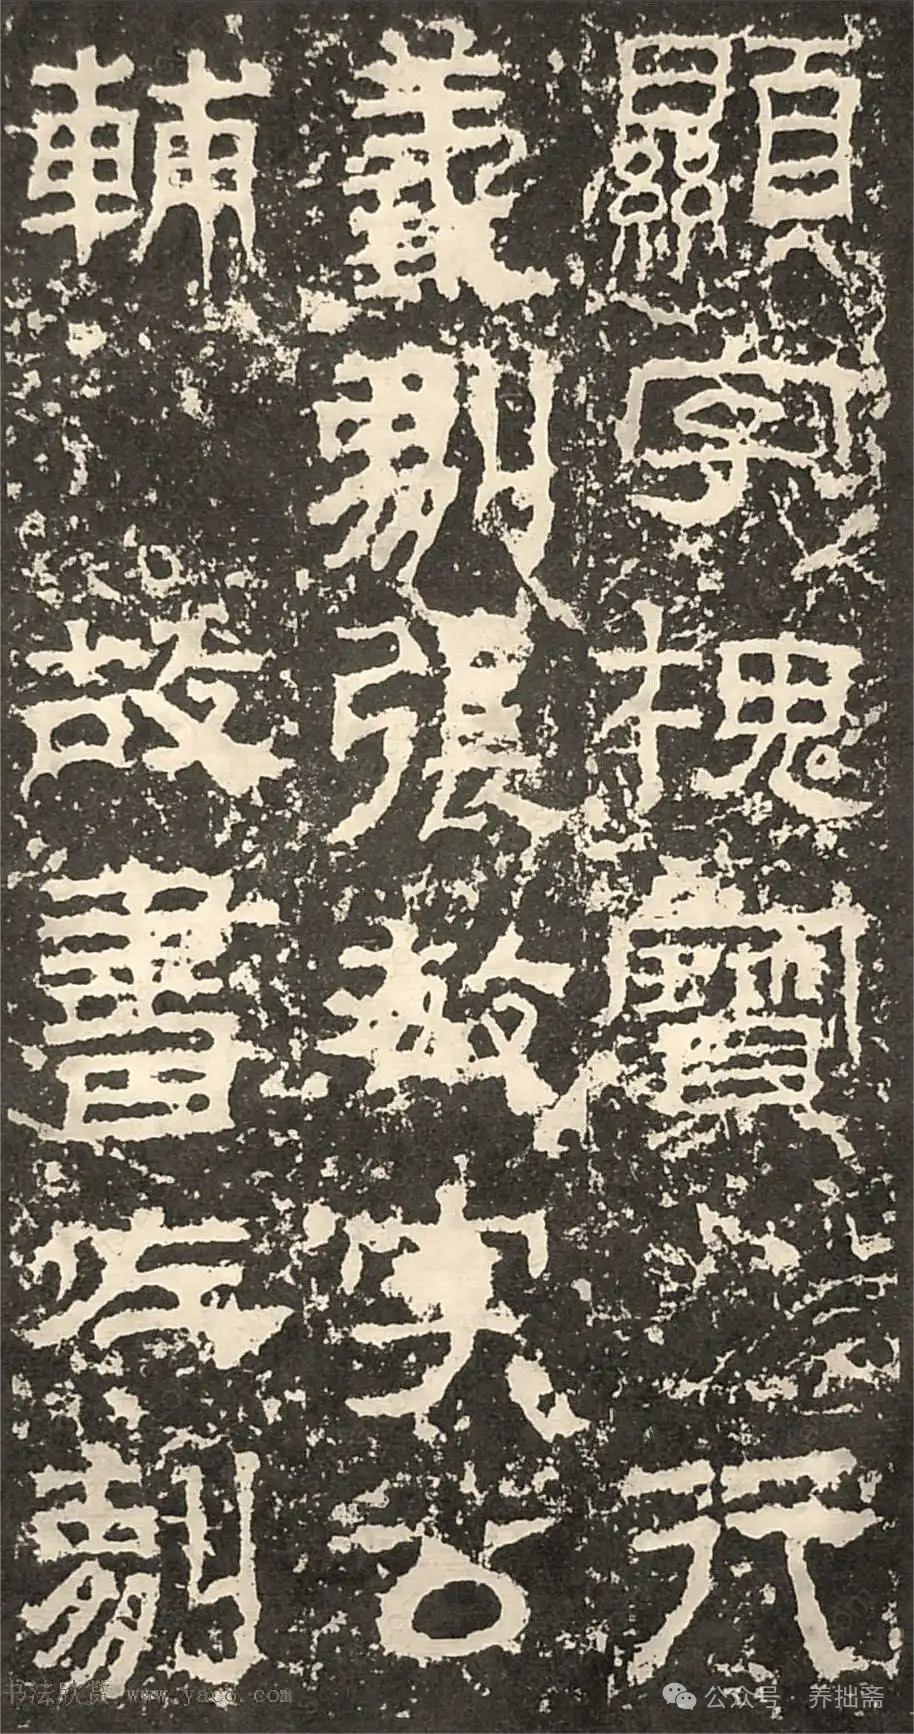 顯字槐寶行
義劇張字公
輔故書佐劇
书法欣赏 www.yac8.com
公众号 · 养拙斋